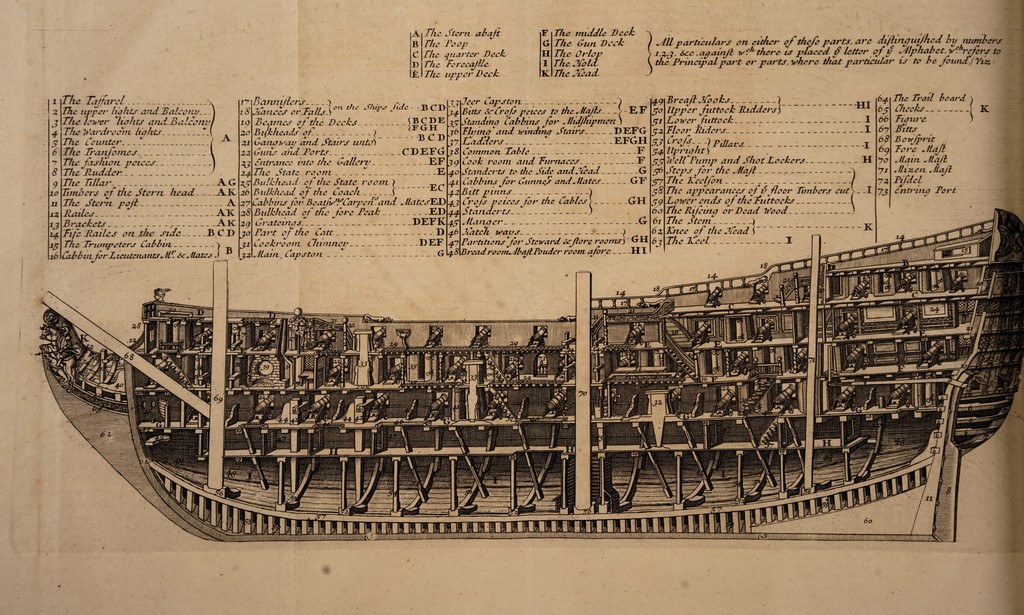 A The Stern abaft
B The Poop
C The quarter Deck
D The Forecastle
E The upper Deck
F The middle Deck
G The Gun Deck
H The Orlop
I The Hold
K The Head
All particulars on either of these parts, are distinguished by numbers
1.2.3. &c. against wch. there is placed ye letter of ye Alphabet, wch. refers to
the Principal part or parts, where that particular is to be found, Viz.
1 The Taffarel
2 The upper lights and Balcony
3 The lower lights and Balcony
4 The Wardroom lights
5 The Counter
6 The Transomes
7 The fashion peices
8 The Rudder
A
9 The Tillar A G
10 Timbers of the Stern head A K
11 The Stern post A
12 Railes A K
13 Brackets A K
14 Fife Railes on the side B C D
15 The Trumpeters Cabbin
16 Cabbin for Lieutenants Mr. & Mates
B
17 Bannisters
18 Hances or Falls
on the Ships side B C D
19 Beames of the Decks B C D E F G H
20 Bulkheads of B C D
21 Gangway and Stairs unto B C D
22 Guns and Ports C D E F G
23 Entrance into the Gallery E F
24 The State room E
25 Bulkhead of the State room
26 Bulkhead of the Coach
E C
27 Cabbins for Boatswn. Carpenr. and Mates E D
28 Bulkhead of the fore Peak E D
29 Grateings D E F K
30 Part of the Catt D
31 Cookroom Chimney D E F
32 Main Capston G
33 Jeer Capston
34 Bitts & Cross peices to the Masts
35 Standing Cabbins for Midshipmen
E F
36 Flying and winding Stairs D E F G
37 Ladders E F G H
38 Common Table F
39 Cook room and Furnaces F
40 Standerts to the Side and Head G
41 Cabbins for Gunners and Mates G F
42 Bitt pinns
43 Cross peices for the Cables
44 Standerts
G H
45 Manger G
46 Hatch ways
47 Partitions for Steward & store rooms
G H
48 Bread room Abaft Pouder room afore H I
49 Breast Hooks
50 Upper futtock Rudders
H I
51 Lower futtock I
52 Floor Riders I
53 Cross
54 Upright
Pillars I
55 Well Pump and Shot Lockers H
56 Steps for the Mast
57 The Keelson
58 The appearances of ye floor Timbers cut
59 Lower ends of the Futtocks
60 The Riseing or Dead Wood
I
61 The Stem
62 Knee of the Head
K
63 The Keel I
64 The Trail board
65 Cheeks
66 Figure
K
67 Bitts
68 Bowsprit
69 Fore Mast
70 Main Mast
71 Mizen Mast
72 Pissdel
73 Entring Port